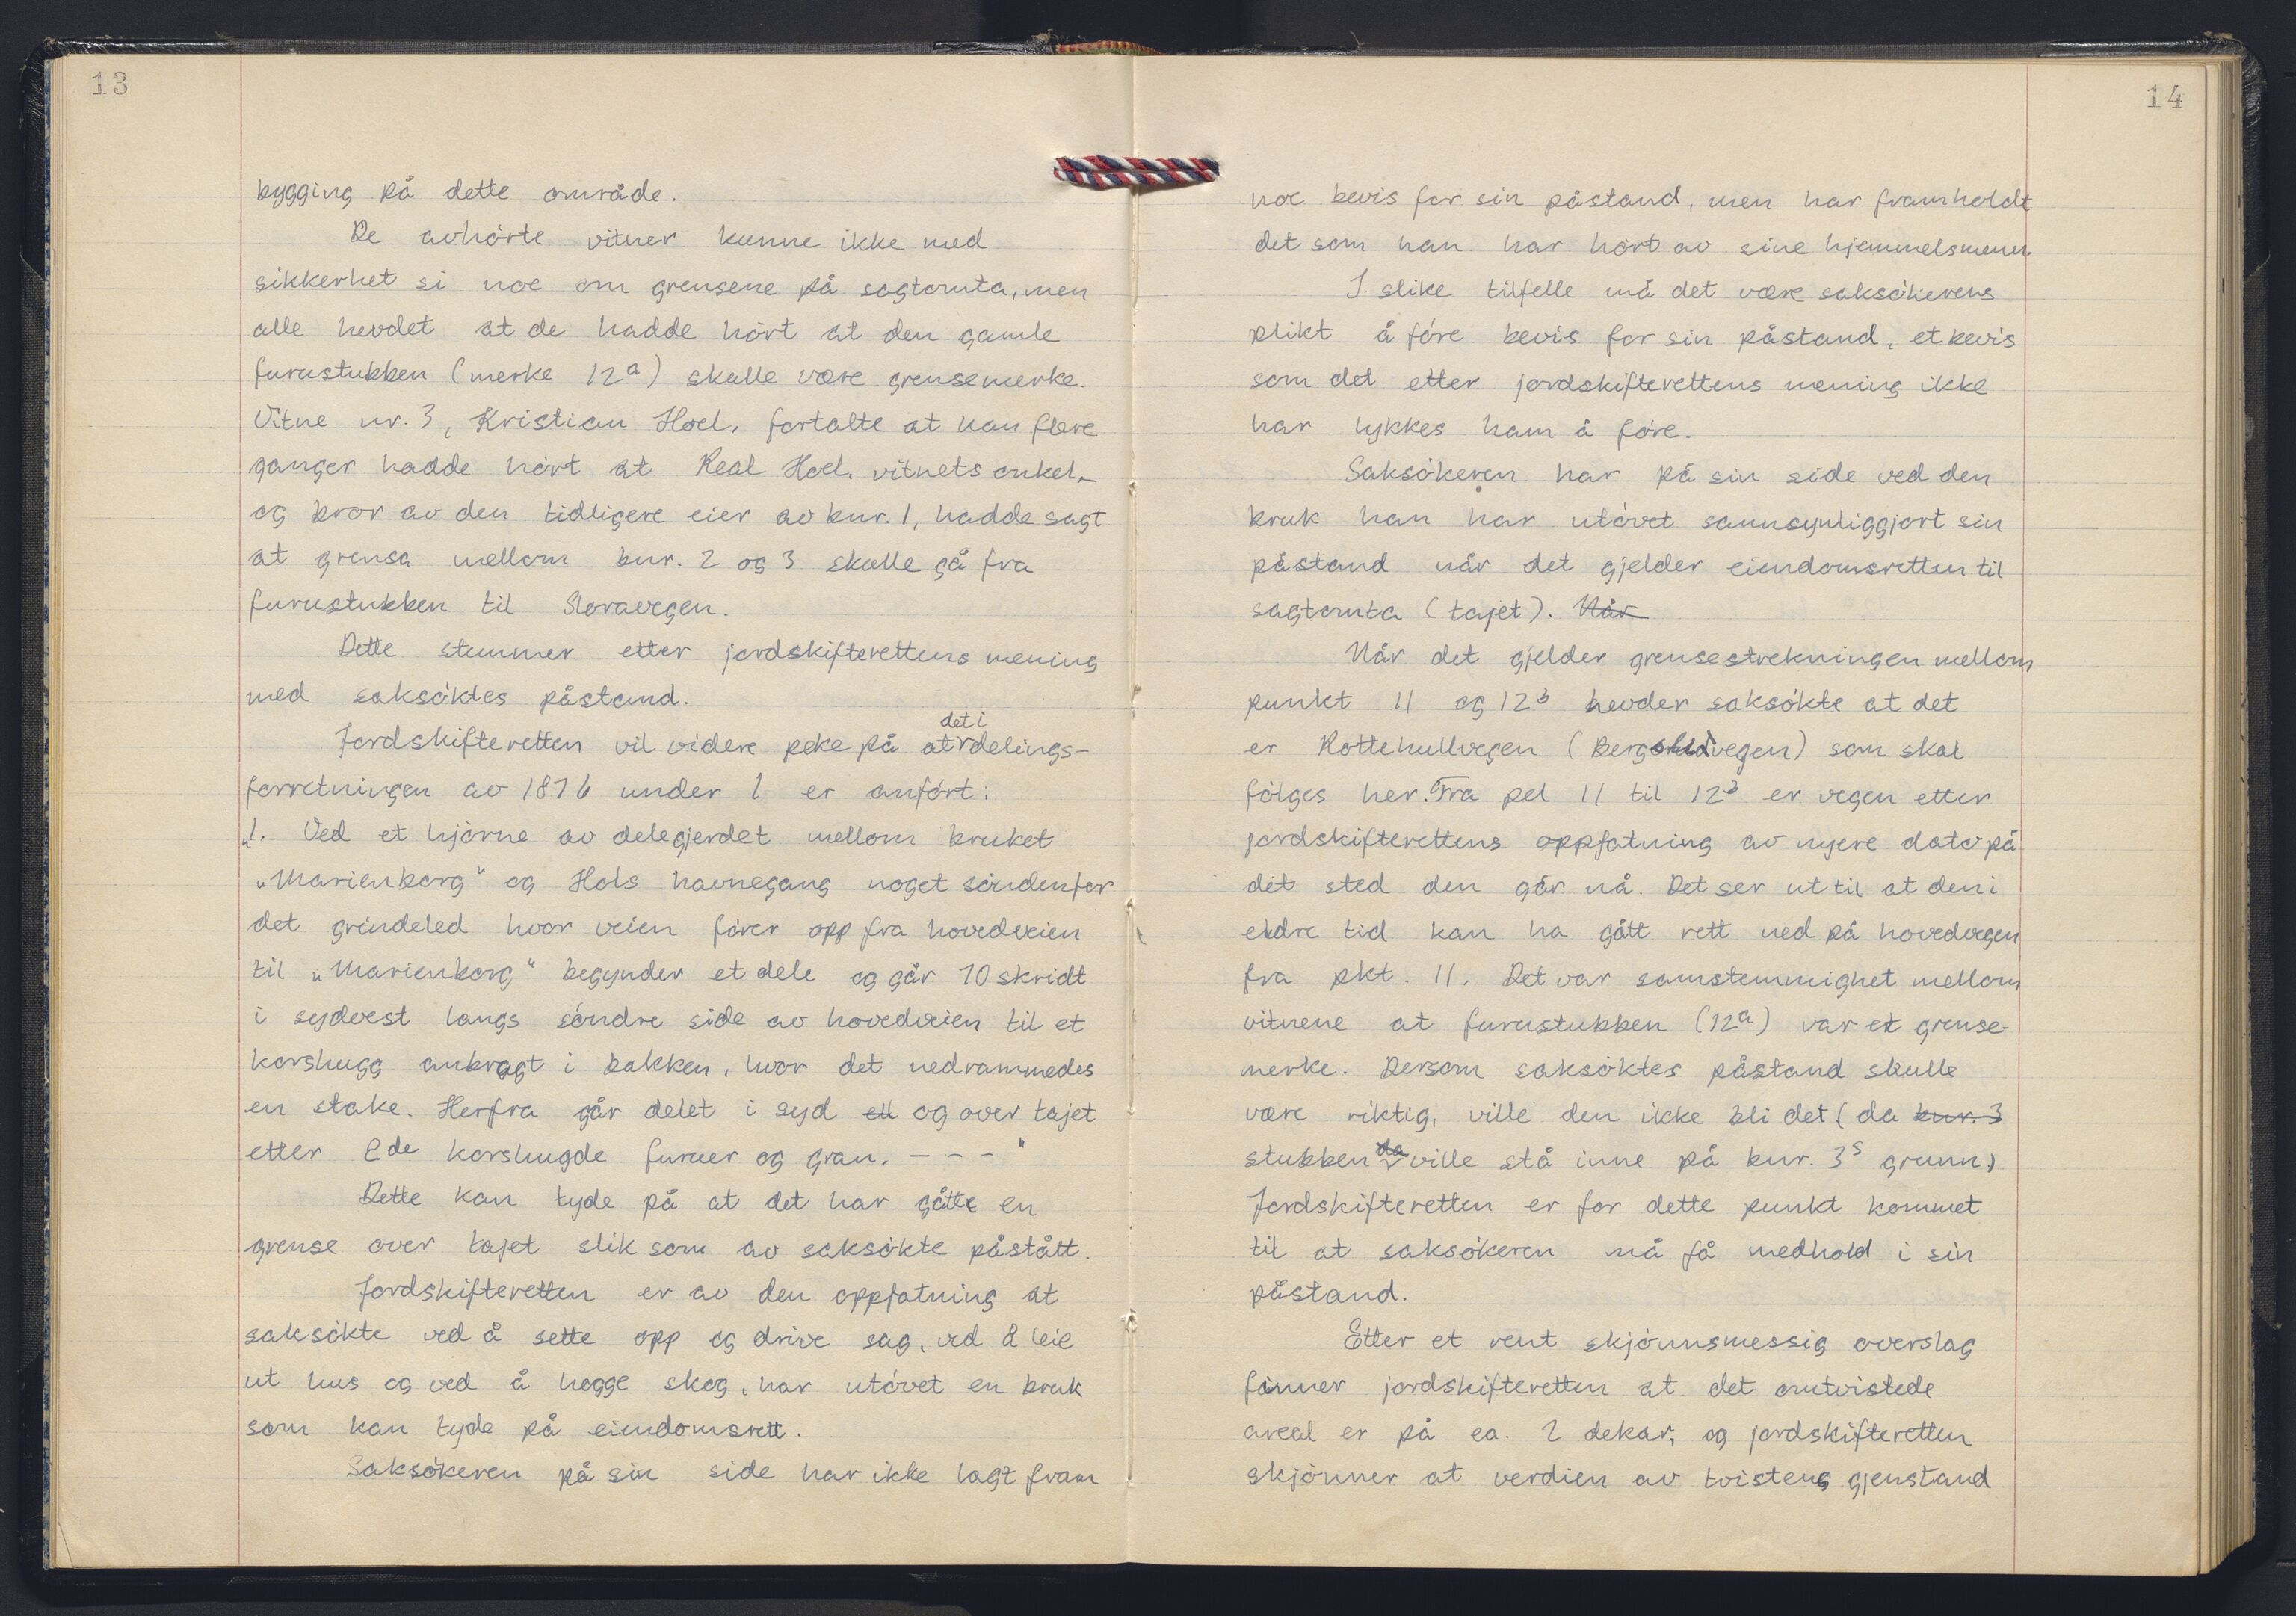 13
bygging på dette område.
De avhörte vitner kunne ikke med
sikkerhet si noe om grensene på sagtomta, men
alle hevdet at de hadde hört at den gamle
furustubben (merke 12a) skulle være grensemerke.
Vitne nr. 3, Kristian Hoel, fortalte at han flere
ganger hadde hört at Real Hoel, vitnets onkel,
og bror av den tidligere eier av bnr. 1, hadde sagt
at grensa mellom bnr. 2 og 3 skulle gå fra
furustubben til Storavegen.
Dette stemmer etter jordskifterettens mening
med saksöktes påstand.
Jordskifteretten vil videre peke på at det i delings-
forretningen av 1876 under 1 er anfört:
„1. Ved et hjörne av delegjerdet mellom bruket
„Marienborg" og Hols havnegang noget söndenfor
det grindeled hvor veien förer opp fra hovedveien
til „Marienborg" begynder et dele og går 10 skridt
i sydvest langs söndre side av hovedveien til et
korshugg anbragt i bakken, hvor det nedrammedes
en stake. Herfra går delet i syd og over tajet
etter 2de korshugde furuer og gran. - - - "
Dette kan tyde på at det har gått en
grense over tajet slik som av saksökte påstått.
Jordskifteretten er av den oppfatning at
saksökte ved å sette opp og drive sag, ved å leie
ut hus og ved å hogge skog, har utövet en bruk
som kan tyde på eiendomsrett.
Saksökeren på sin side har ikke lagt fram
14
noe bevis for sin påstand, men har framholdt
det som han har hört av sine hjemmelsmenn.
I slike tilfelle må det være saksökerens
plikt å före bevis for sin påstand, et bevis
som det etter jordskifterettens mening ikke
har lykkes ham å före.
Saksökeren har på sin side ved den
bruk han har utövet sannsynliggjort sin
påstand når det gjelder eiendomsretten til
sagtomta (tajet). Når
Når det gjelder grensestrekningen mellom
punkt 11 og 12b hevder saksökte at det
er Rottehullvegen (vegen) som skal
fölges her. Fra pel 11 til 12b er vegen etter
jordskifterettens oppfatning av nyere dato på
det sted den går nå. Det ser ut til at den i
eldre tid kan ha gått rett ned på hovedvegen
fra pkt. 11. Det var samstemmighet mellom
vitnene at furustubben (12a) var et grense-
merke. Dersom saksöktes påstand skulle
være riktig, ville den ikke bli det (da bnr. 3
stubben da ville stå inne på bnr. 3s grunn)
Jordskifteretten er for dette punkt kommet
til at saksökeren må få medhold i sin
påstand.
Etter et rent skjönnsmessig overslag
finner jordskifteretten at det omtvistede
areal er på ca. 2 dekar, og jordskifteretten
skjönner at verdien av tvistens gjenstand